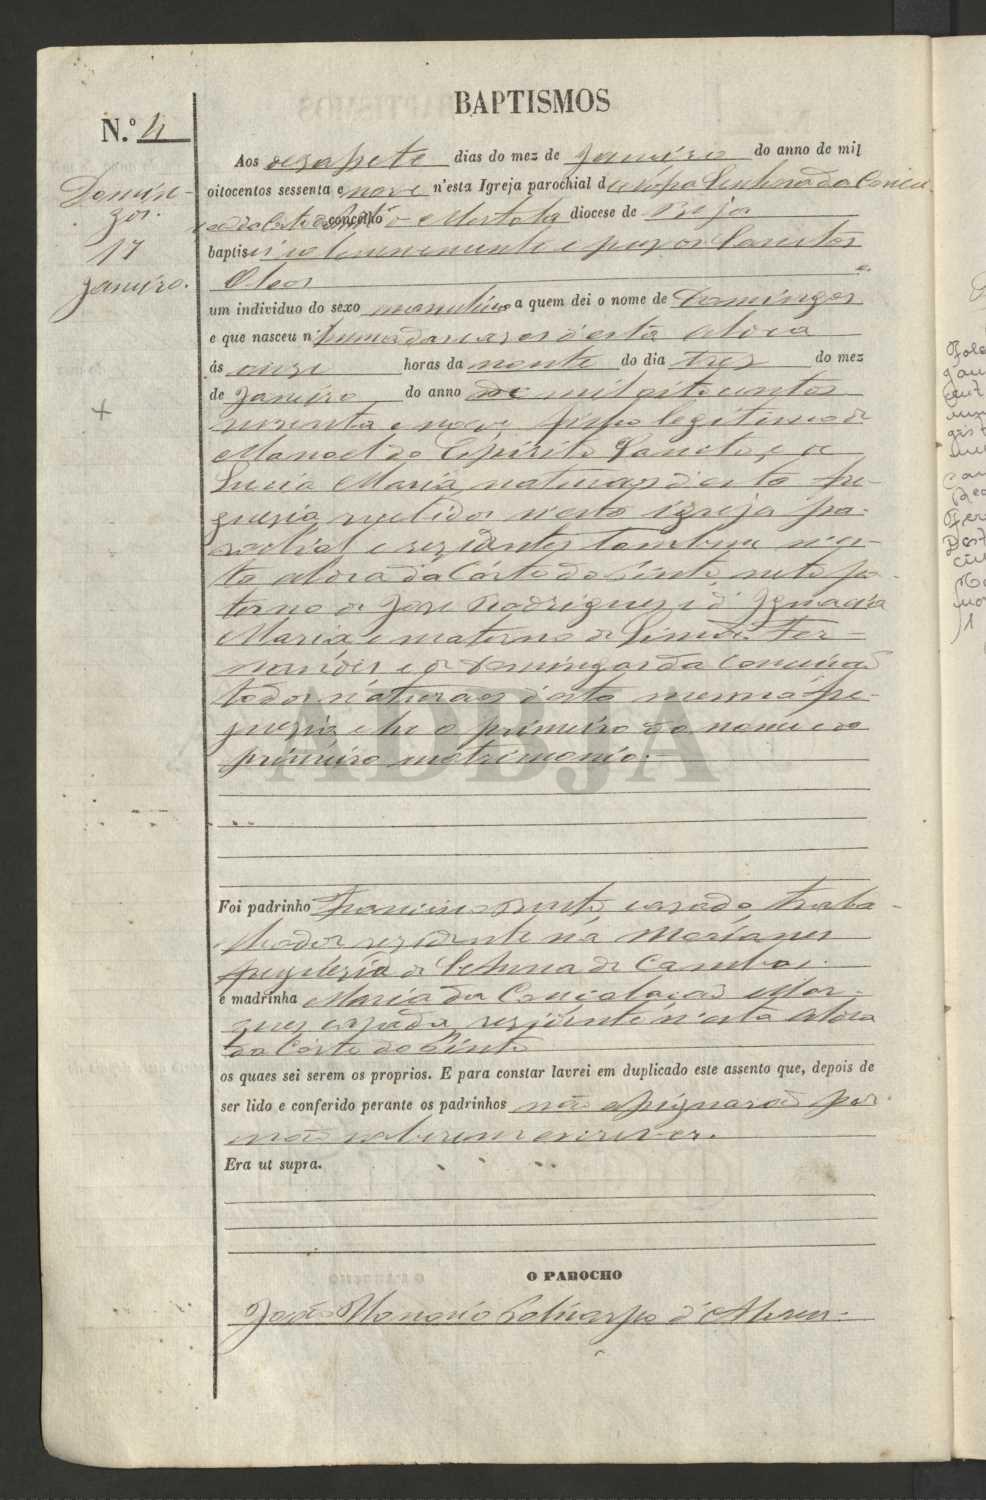 BAPTISMOS
N.º 4
Domin-
gos.
17
Janeiro.
Aos desassete dias do mez de Janeiro do anno de mil
oitocentos sessenta e nove n'esta Igreja parochial de Nossa Senhora da Concei-
concelho Mertola diocese de Beja
baptisei solemnemente e puz os Sanctos
Oleos
um individuo do sexo masculino a quem dei o nome de Domingos
e que nasceu n'huma das casas d'esta aldeia
ás onze horas da noute do dia trez do mez
de Janeiro do anno de mil oito centos
sessenta e nove filho legitimo de
Manoel do Espirito Sancto, e de
Luzia Maria, naturaes d'esta fre-
guezia recebidos n'esta igreja pa-
rochial e residentes tambem n'es-
ta aldeia da Côrte do Pinto, neto pa-
terno de José Rodrigues e d' Ignacia
Maria e materno de Fer-
nandes e de Domingas da Conceição
todos naturaes d'esta mesma fre-
guezia e he o primeiro do nome e do
primeiro matrimonio.
ADBJA
Foi padrinho Francisco Bento, casado traba-
lhador rezidente na
freguezia de
e madrinha Maria da Mar-
ques casada, rezidente n'esta aldeia
da Côrte do Pinto
os quaes sei serem os proprios. E para constar lavrei em duplicado este assento que, depois de
ser lido e conferido perante os padrinhos não assignarão por
não saberem escrever.
Era ut supra.
O PAROCHO
João d'Abreu.